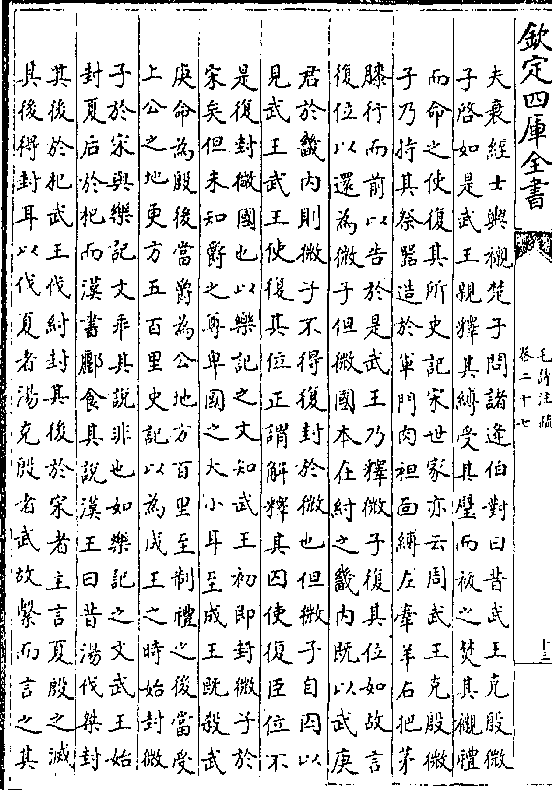 欽定四庫全書
毛詩注疏
卷二十七
十三
夫衰絰士輿櫬楚子問諸逢伯對曰昔武王克殷微
子啓如是武王親釋其縛受其璧而祓之焚其櫬禮
而命之使復其所史記宋世家亦云周武王克殷微
子乃持其祭器造於軍門肉袒面縛左牽羊右把茅
膝行而前以告於是武王乃釋微子復其位如故言
復位以還為微子但微國本在紂之畿內既以武庚
君於畿內則微子不得復封於微也但微子自囚以
見武王武王使復其位正謂解釋其囚使復臣位不
是復封微國也以樂記之文知武王初即封微子於
宋矣但未知爵之尊卑國之大小耳至成王既殺武
庚命為殷後當爵為公地方百里至制禮之後當受
上公之地更方五百里史記以為成王之時始封微
子於宋與樂記文乖其說非也如樂記之文武王始
封夏后於杞而漢書酈食其說漢王曰昔湯伐桀封
其後於杞武王伐紂封其後於宋者主言夏殷之滅
其後得封耳以伐夏者湯克殷者武故繫而言之其